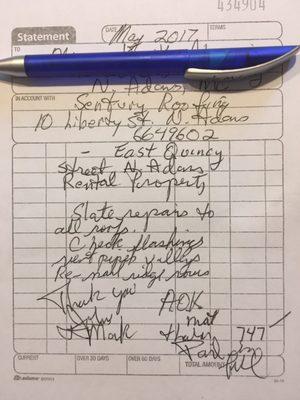 434904
Statement
DATE May 2017
TERMS
TO
N. Adams, Ma
IN ACCOUNT WITH
Sentury Roofing
10 Liberty St. N. Adams
6649602
- East Quincy
Street N. Adams
Rental Property
Slate repairs to
all roofs.
Check flashings
vent pipes valleys
Re-nail ridge
Thank you
AOK
Mark
747
Paid in
full
CURRENT
OVER 30 DAYS
OVER 60 DAYS
TOTAL AMOUNT
adams